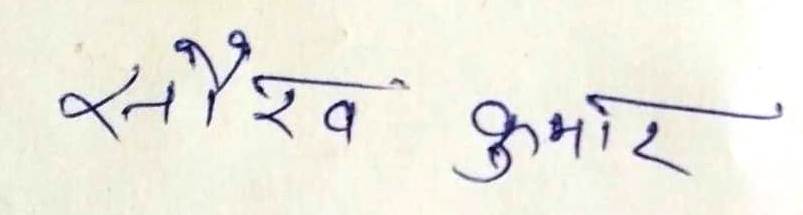 सौरव कुमार